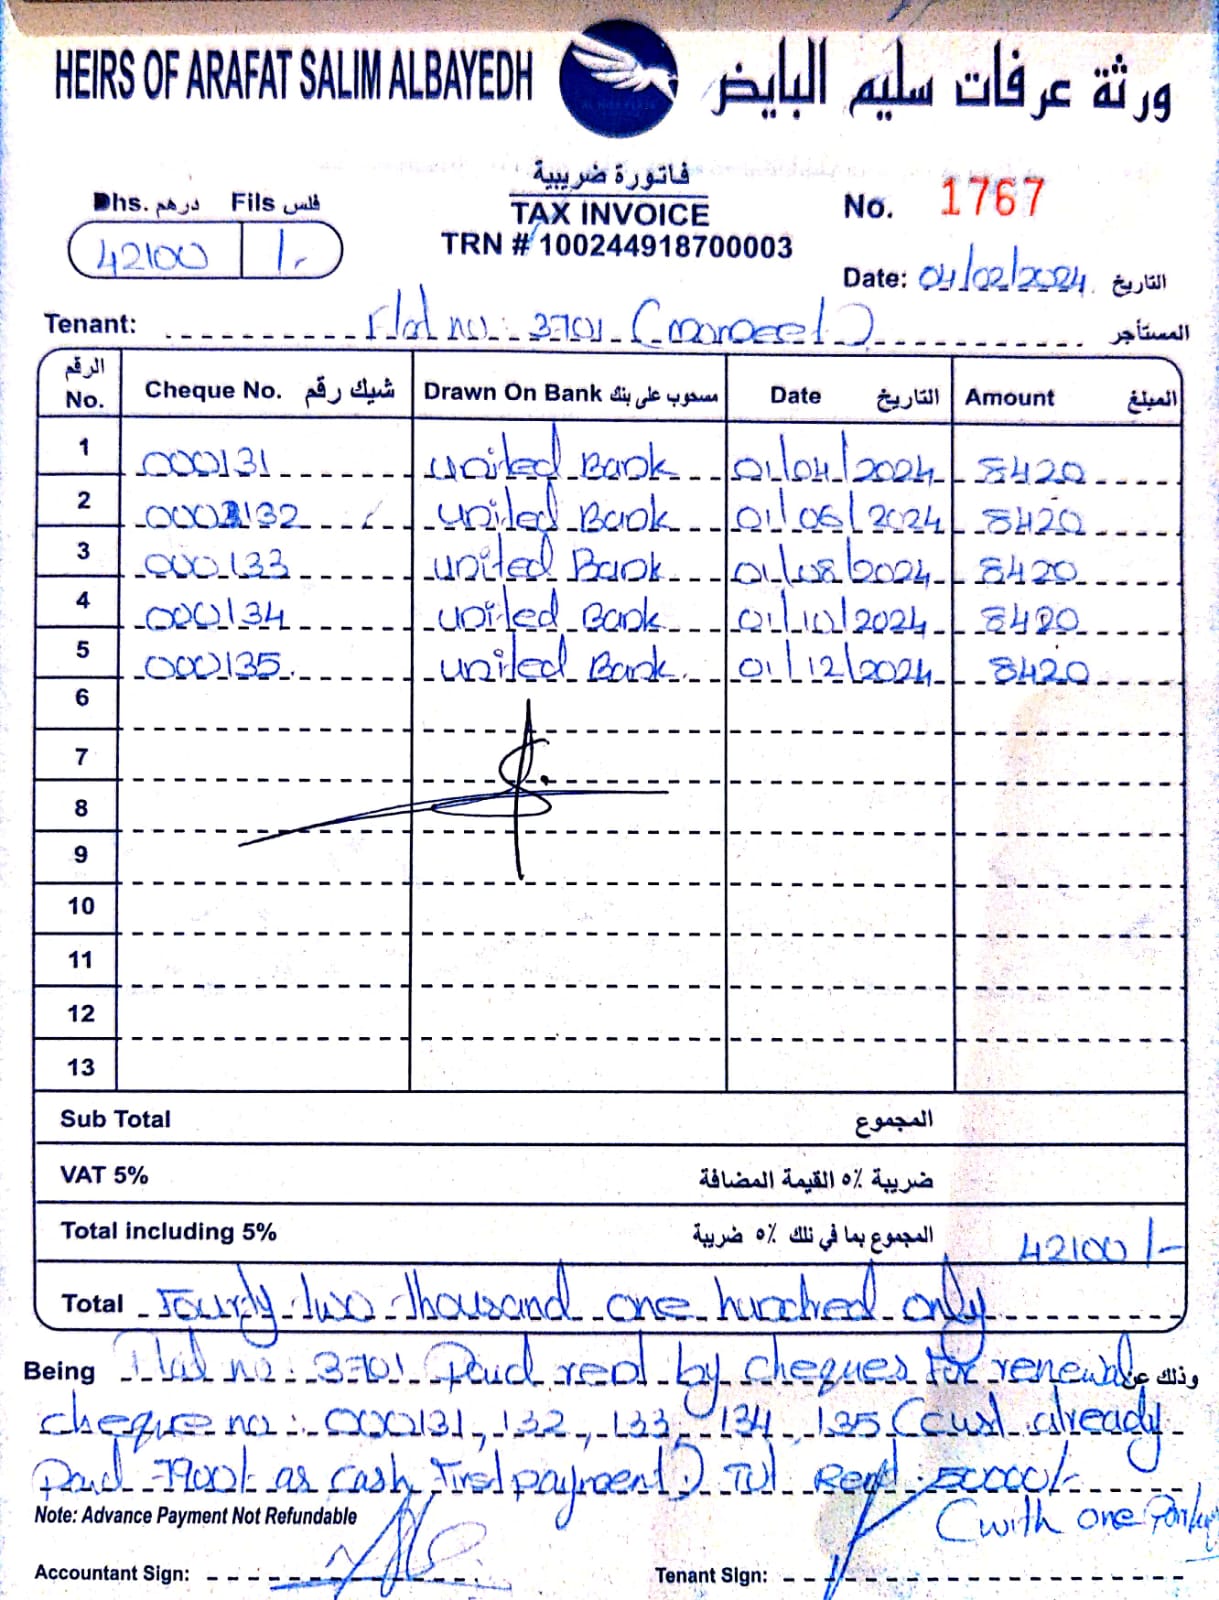 HEIRS OF ARAFAT SALIM ALBAYEDH ورثة عرفات سليم البايض
فاتورة ضريبية
Dhs. درهم Fils فلس TAX INVOICE No. 1767
42100 /- TRN # 100244918700003
Date: 04/02/2024 التاريخ
Tenant: Flat no: 3701 المستأجر
الرقم No. Cheque No. شيك رقم Drawn On Bank مسحوب على بنك Date التاريخ Amount المبلغ
1 000131 united Bank 01/04/2024 8420
2 000132 united Bank 01/06/2024 8420
3 000133 united Bank 01/08/2024 8420
4 000134 united Bank 01/10/2024 8420
5 000135 united Bank 01/12/2024 8420
6
7
8
9
10
11
12
13
Sub Total المجموع
VAT 5% ضريبة ٥٪ القيمة المضافة
Total including 5% المجموع بما في ذلك ٥٪ ضريبة 42100/-
Total Fourty two thousand one hundred only
Being Flat no: 3701 Paid rent by cheques for renewal وذلك عن
cheque no: 000131, 132, 133, 134, 135 (cust already
Paid 7900/- as cash First payment) Tot Rent: 50000/-
Note: Advance Payment Not Refundable (with one Parking
Accountant Sign: Tenant Sign: